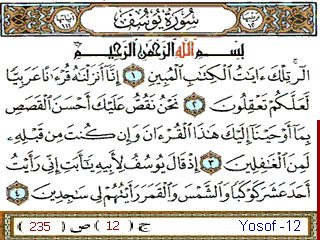 سُورَةُ يُوسُفَ
بِسْمِ اللَّهِ الرَّحْمَٰنِ الرَّحِيمِ
الٓر تِلْكَ ءَايَٰتُ ٱلْكِتَٰبِ ٱلْمُبِينِ ١ إِنَّآ أَنزَلْنَٰهُ قُرْءَٰنًا عَرَبِيًّا
لَّعَلَّكُمْ تَعْقِلُونَ ٢ نَحْنُ نَقُصُّ عَلَيْكَ أَحْسَنَ ٱلْقَصَصِ
بِمَآ أَوْحَيْنَآ إِلَيْكَ هَٰذَا ٱلْقُرْءَانَ وَإِن كُنتَ مِن قَبْلِهِۦ
لَمِنَ ٱلْغَٰفِلِينَ ٣ إِذْ قَالَ يُوسُفُ لِأَبِيهِ يَٰٓأَبَتِ إِنِّى رَأَيْتُ
أَحَدَ عَشَرَ كَوْكَبًا وَٱلشَّمْسَ وَٱلْقَمَرَ رَأَيْتُهُمْ لِى سَٰجِدِينَ ٤
ج ( 12 ) ص ( 235 ) Yosof -12